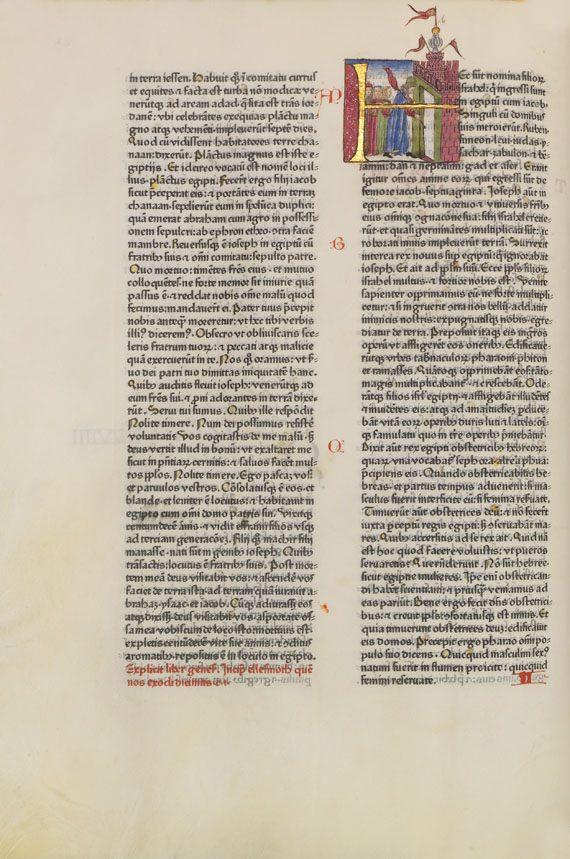 in terra iessen. Habuit q̃ȝ ī comitatu currus
et equites ⁊ facta est turba nõ modica: ve-
nerũtqȝ ad aream adad q̃ sita est trãs ior-
danē: vbi celebrātes exequias plāctu ma
gno atqȝ vehemēti impleverũt septē dies.
Quod cũ vidissent habitatores terre cha-
naan: dixerũt. Plāctus magnus est iste e-
giptijs. Et idcirco vocati est nomē loci il-
lius planctus egipti. Fecerũt ergo filij iacob
sicut p̃ceperat eis: ⁊ portātes eum in terrā
chanaan: sepelierũt eum in spelũca duplici:
quā emerat abraham cum agro in possessi-
onem sepulcri: ab ephron etheo ↄtra faciē
mambre. Reversusqȝ ē ioseph in egiptũ cũ
fratribȝ suis ⁊ oĩ comitatu: sepulto patre.
Quo mortuo: timētes frēs eius ⁊ mutuo
colloquētes: ne forte memor sit iniurie quā
passus ē: ⁊ reddat nobis om̄e malũ quod
fecimus: mandaverũt ei. Pater tuus p̃cepit
nobis anteq̃ moreretur: vt hec tibi verbis
illiꝰ diceremꝰ. Obsecro vt obliviscaris sce-
leris fratrum tuorȝ: ⁊ peccati atqȝ malicie
quā exercuerũt in te. Nos q̃ȝ oramus: vt ẜ-
vo dei patri tuo dimittas iniquitatē hanc.
Quibȝ auditis flevit ioseph: venerũtqȝ ad
eum frēs sui. ⁊ p̃ni adorantes in terrā dixe-
rũt. Servi tui sumus. Quibȝ ille respõdit
Nolite timere. Num dei possumus resistē
voluntati? Vos cogitastis de me malũ: ẜ
deus vertit illud in bonũ: vt exaltaret me
sicut in p̃ntiarȝ cernitis: ⁊ salvos facēt mul-
tos pp̃los. Nolite timere. Ego pascā vos
et parvulos vestros. Cõsolatusqȝ ē eos ⁊
blande ⁊ leniter ē locutus: ⁊ habitavit in
egipto cum om̄i domo patris sui. Vixitqȝ
centum decē anis ⁊ vidit effraim filios vsqȝ
ad terciam generacõeȝ. Filij q̃ȝ machir filij
manasse nati sũt in genibȝ ioseph. Quibȝ
trãsactis: locutus ē fratribȝ suis. Post mor
tem meā deus visitabit vos: ⁊ ascendē vos
faciet de terra ista: ad terram quā iuravit a-
brahaȝ ysaac et iacob. Cũqȝ adiurassȝ eos
atqȝ dixissȝ deus visitabit vos: asportate os-
sa mea vobiscum de loco isto: mortuus est
expletis centũdecē vite sue annis. ⁊ cõditus
aromatibȝ repositus ē in loculo in egipto.
Explicit liber geneẜ. Incip̃ ellesmoth quē
nos exodi dicimus.
Ec sũt nomina filiorȝ
israhel: q̃ ingressi sunt
in egiptũ cum iacob.
Singuli cũ domibus
suis introierũt. Ruben.
simeon. leui. iudas. y-
sachar. zabulon. ⁊ bē-
iamin. dan ⁊ neptalim: gad et aser. Erant
igitur om̄es anime eorȝ: qui egressi sunt de
femore iacob septuaginta. Joseph aũt in
egipto erat. Quo mortuo ⁊ vniversis fribȝ
eius om̄iqȝ cognacõne sua: filij israhel creve-
rũt ⁊ quasi germinātes multiplicati sũt: ac
roborati nimis impleverũt terrā. Surrexit
interea rex novus sup egiptũ: q̃ ignorabat
ioseph. Et ait ad pp̃lm suũ. Ecce pp̃ls filiorȝ
israhel multus ⁊ fortior nobis est. Venite
sapienter opprimamus eũ: ne forte multipli-
cetur: ⁊ si ingruerit ↄtra nos bellũ: addat̃
inimicis nostris: expugnatisqȝ nobis egre-
diatur de terra. Preposuit itaqȝ eis mgr̃os
operũ vt affligeret eos oneribȝ. Edificaue-
rũtqȝ vrbes tabnaculoȝ pharaoni phiton
et ramasses. Quãtoqȝ opprimebāt eos: tãto
magis multiplicabanĩ ⁊ crescebāt. Ode-
rātqȝ filios isrl̃ egiptij ⁊ affligebāt illudētes
⁊ invidētes eis: atqȝ ad amaritudinē p̃duce-
bāt vitā eorȝ operibȝ duris luti ⁊ lateris: oĩ-
qȝ famulatu quo in t̃re operibȝ p̃mebāt̃.
Dixit aũt rex egipti obstetricibȝ hebreorȝ:
quarȝ vna vocabat̃ sephora: altera phua:
p̃cipiens eis. Quando obstetricabitis he-
breas ⁊ partus tempus advenerit: si ma-
sculus fuerit interficite eũ: si femina reẜvate.
Timuerũt aũt obstetrices deũ: ⁊ nõ fecerũt
iuxta p̃ceptũ regis egipti: ẜ ↄẜvabāt ma-
res. Quibȝ accersitis ad se rex ait. Quidnā
est hoc quod facere voluistis: vt pueros
servaretis? Que rñderunt. Nõ sũt hebree
sicut egiptie mulieres. Ipe eni obstetrican-
di habēt scientiam: ⁊ priusqȝ veniamus ad
eas pariũt. Bene ergo fecit dñs obstetrici-
bus: ⁊ crevit pp̃ls: ↄfortatusqȝ est nimis. Et
quia timuerunt obstetrices deuȝ: edificavit
eis domos. Precepit ergo pharao omĩ po-
pulo suo dicens. Quicquid masculini sexꝰ
natum fuerit in flumen proicite: quicquid
feminini reservate.